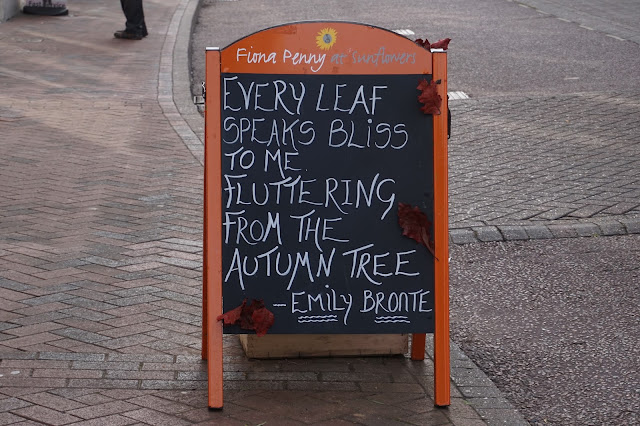 Fiona Penny at sunflowers
EVERY LEAF
SPEAKS BLISS
TO ME.
FLUTTERING
FROM THE
AUTUMN TREE
- EMILY BRONTE